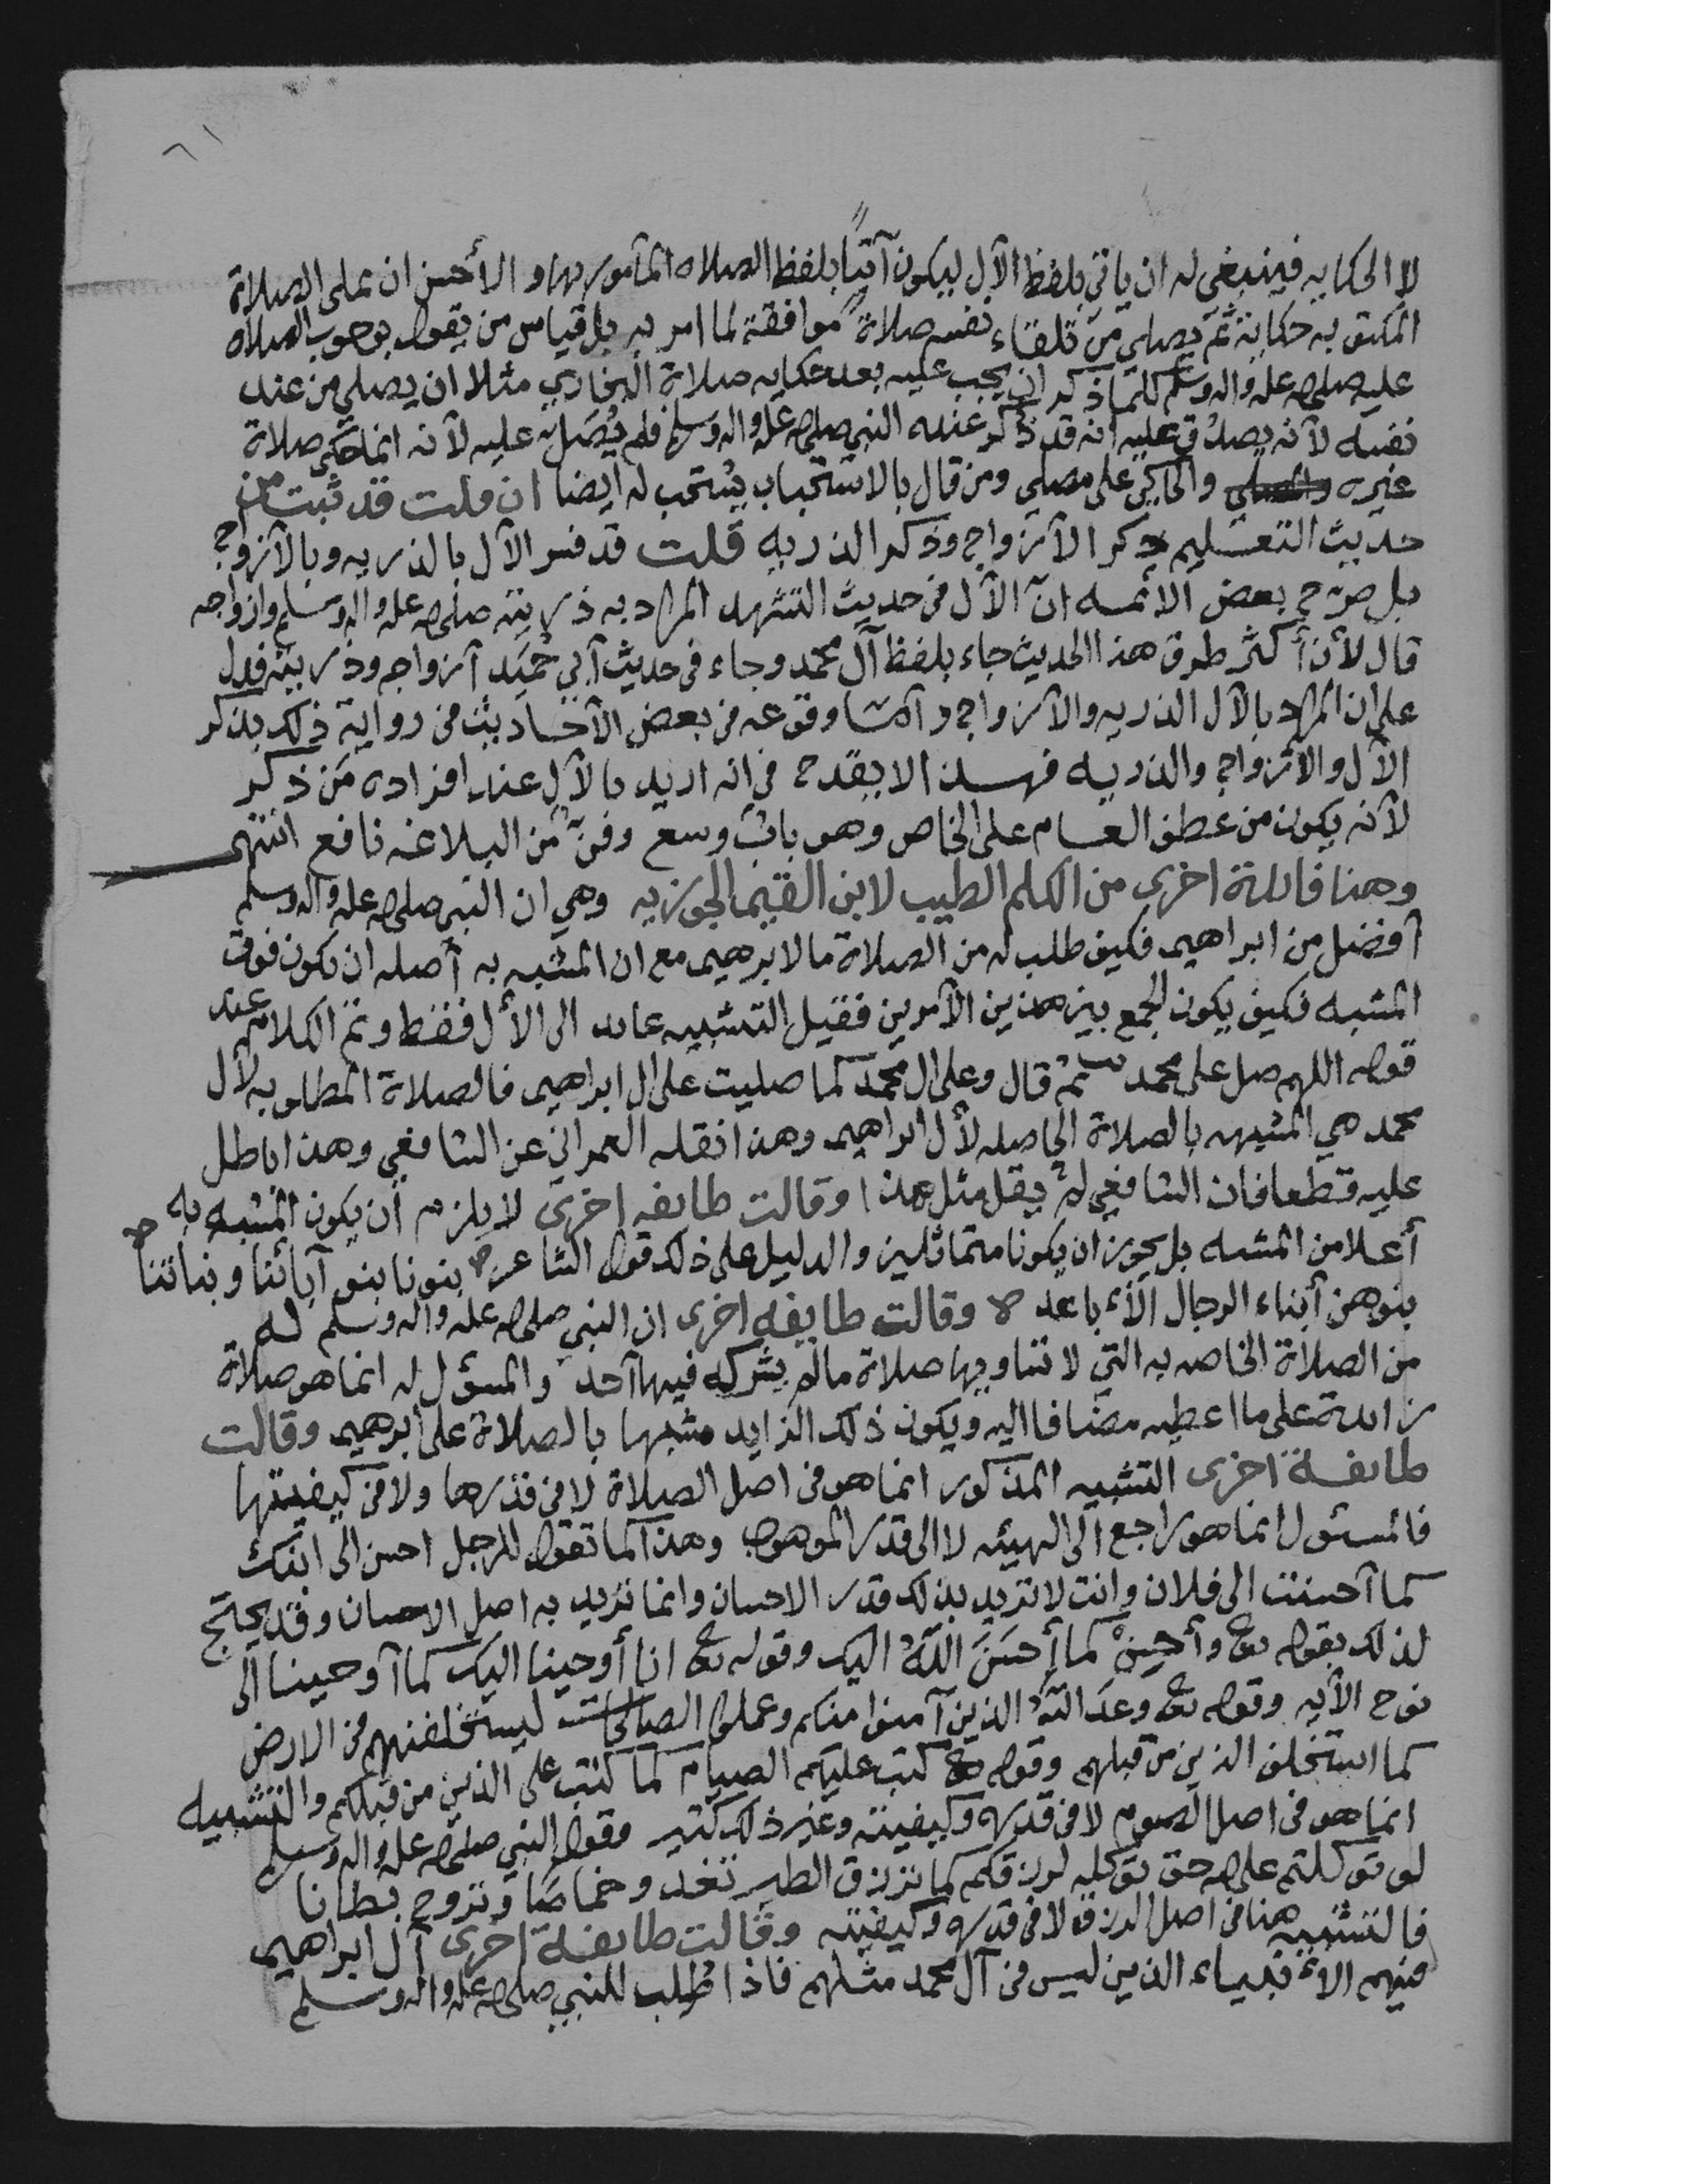 ٦١
لا الحكايه فينبغي له ان ياتي بلفظ الآل ليكون آتيًا بلفظ الصلاه المآمور بها و الأحسن ان يملي الصلاة
المكتوبه حكاية ثم يصلي من تلقاء نفسه صلاة موافقة لما امر به بل قياس من يقول بوجوب الصلاه
عليه صلى الله عليه واله وسلم كلما ذكر ان يجب عليه بعد حكايه صلاة البخاري مثلا ان يصلي من عند
نفسه لآنه يصدق عليه انه قد ذكر عنده النبي صلى الله عليه واله وسلم فلم يُصَلِّ عليه لآنه انما حكى صلاة
غيره والحاكي على مصلي ومن قال بالاستحباب يستحب له ايضا ان قلت قد ثبت من
حديث التعليم ذكر الآزواج وذكر الذريه قلت قد فسر الآل بالذريه وبالآزواج
بل صرح بعض الائمه انّ الآل في حديث التشهد المراد به ذريته صلى الله عليه واله وسلم وازواجه
قال لأن أكثر طرق هذا الحديث جاء بلفظ آل محمد وجاء في حديث آبي حُمَيد آزواجه وذريته فدل
على ان المراد بالآل الذريه والآزواج و آما وقوعه في بعض الآحاديث من رواية ذلك بذكر
الآل والآزواج والذريه فهذا لا يقدح في انه اريد بالآل عند افراده مَن ذكر
لآنه يكون من عطف العام على الخاص وهو بابٌ وسع وفنّ من البلاغه نافع انتهى
وهنا فائدة اخرى من الكلم الطيب لابن القيم الجوزيه وهي ان النبي صلى الله عليه واله وسلم
آفضل من ابراهيم فكيف طلب له من الصلاة ما لابرهيم مع ان المشبه به آصله ان يكون فوق
المشبه فكيف يكون الجمع بين هذين الآمرين فقيل التشبيه عائد الى الآل فقط وتم الكلام عند
قوله اللهم صل على محمد ثم قال وعلى ال محمد كما صليت على ال ابراهيم فالصلاة المطلوبه لآل
محمد هي المشبهه بالصلاة الحاصله لآل ابراهيم وهذا نقله العمراني عن الشافعي وهذا باطل
عليه قطعا فان الشافعي لم يقل مثل هذا وقالت طايفه اخرى لا يلزم أن يكون المشبه به
أعلا من المشبه بل يجوز ان يكونا متماثلين والدليل على ذلك قول الشاعر بنونا بنو آبائنا وبناتنا
بنوهن أبناء الرجال الأباعد وقالت طايفه اخرى ان النبي صلى الله عليه واله وسلم له
من الصلاة الخاصه به التي لا تساويها صلاة مالم يشركه فيها آحد والمسؤل له انما هو صلاة
زائدة على ما اعطيه مضافا اليه ويكون ذلك الزايد مشبها بالصلاة على ابرهيم وقالت
طائفة اخرى التشبيه المذكور انما هو في اصل الصلاة لا في قدرها ولا في كيفيتها
فالمسئول انما هو راجع الى الهيئه لا الى قدر الموهوب وهذا كما تقول للرجل احسن الى ابنك
كما آحسنت الى فلان وانت لا تريد بذلك قدر الاحسان وانما تريد به اصل الاحسان وقد يحتج
لذلك بقوله تعا وأحسِنْ كما أحسَنَ اللّهُ اليك وقوله تعا انا أوحينا اليك كما آوحينا الى
نوح الآيه وقوله تعا وعدَ اللّهُ الذين آمنوا منكم وعملوا الصالحات ليستخلفنهم في الارض
كما استخلف الذين من قبلهم وقوله تعا كتب عليكم الصيام كما كتب على الذين من قبلكم والتشبيه
انما هو في اصل الصوم لا في قدره وكيفيته وغير ذلك كثير وقول النبي صلى الله عليه واله وسلم
لو توكلتم على الله حق توكله لرزقكم كما ترزق الطير تغدو خماصًا وتروح بطانا
فالتشبيه هنا في اصل الرزق لا في قدره وكيفيته وقالت طائفة اخرى آل ابراهيم
فيهم الآنبياء الذين ليس في آل محمد مثلهم فاذا طُلِب للنبي صلى الله عليه واله وسلم